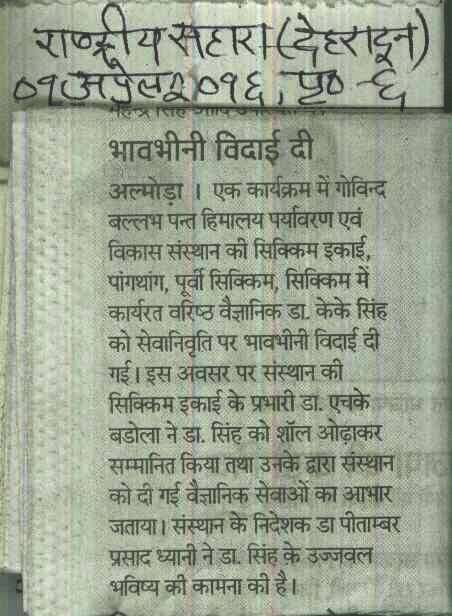 राष्ट्रीय सहारा (देहरादून)
०१ अप्रैल २०१६, पृ० -६
भावभीनी विदाई दी
अल्मोड़ा । एक कार्यक्रम में गोविन्द
बल्लभ पन्त हिमालय पर्यावरण एवं
विकास संस्थान की सिक्किम इकाई,
पांगथांग, पूर्वी सिक्किम, सिक्किम में
कार्यरत वरिष्ठ वैज्ञानिक डा. केके सिंह
को सेवानिवृति पर भावभीनी विदाई दी
गई। इस अवसर पर संस्थान की
सिक्किम इकाई के प्रभारी डा. एचके
बडोला ने डा. सिंह को शॉल ओढ़ाकर
सम्मानित किया तथा उनके द्वारा संस्थान
को दी गई वैज्ञानिक सेवाओं का आभार
जताया। संस्थान के निदेशक डा पीताम्बर
प्रसाद ध्यानी ने डा. सिंह के उज्जवल
भविष्य की कामना की है।